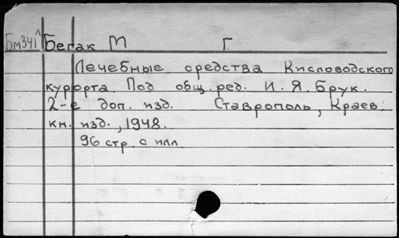 Бм341л Бегак М Г
Лечебные средства Кисловодского
курорта. Под общ. ред. И. Я. Брук.
2-е доп. изд. Ставрополь, Краев.
кн. изд., 1948.
96 стр. с илл.